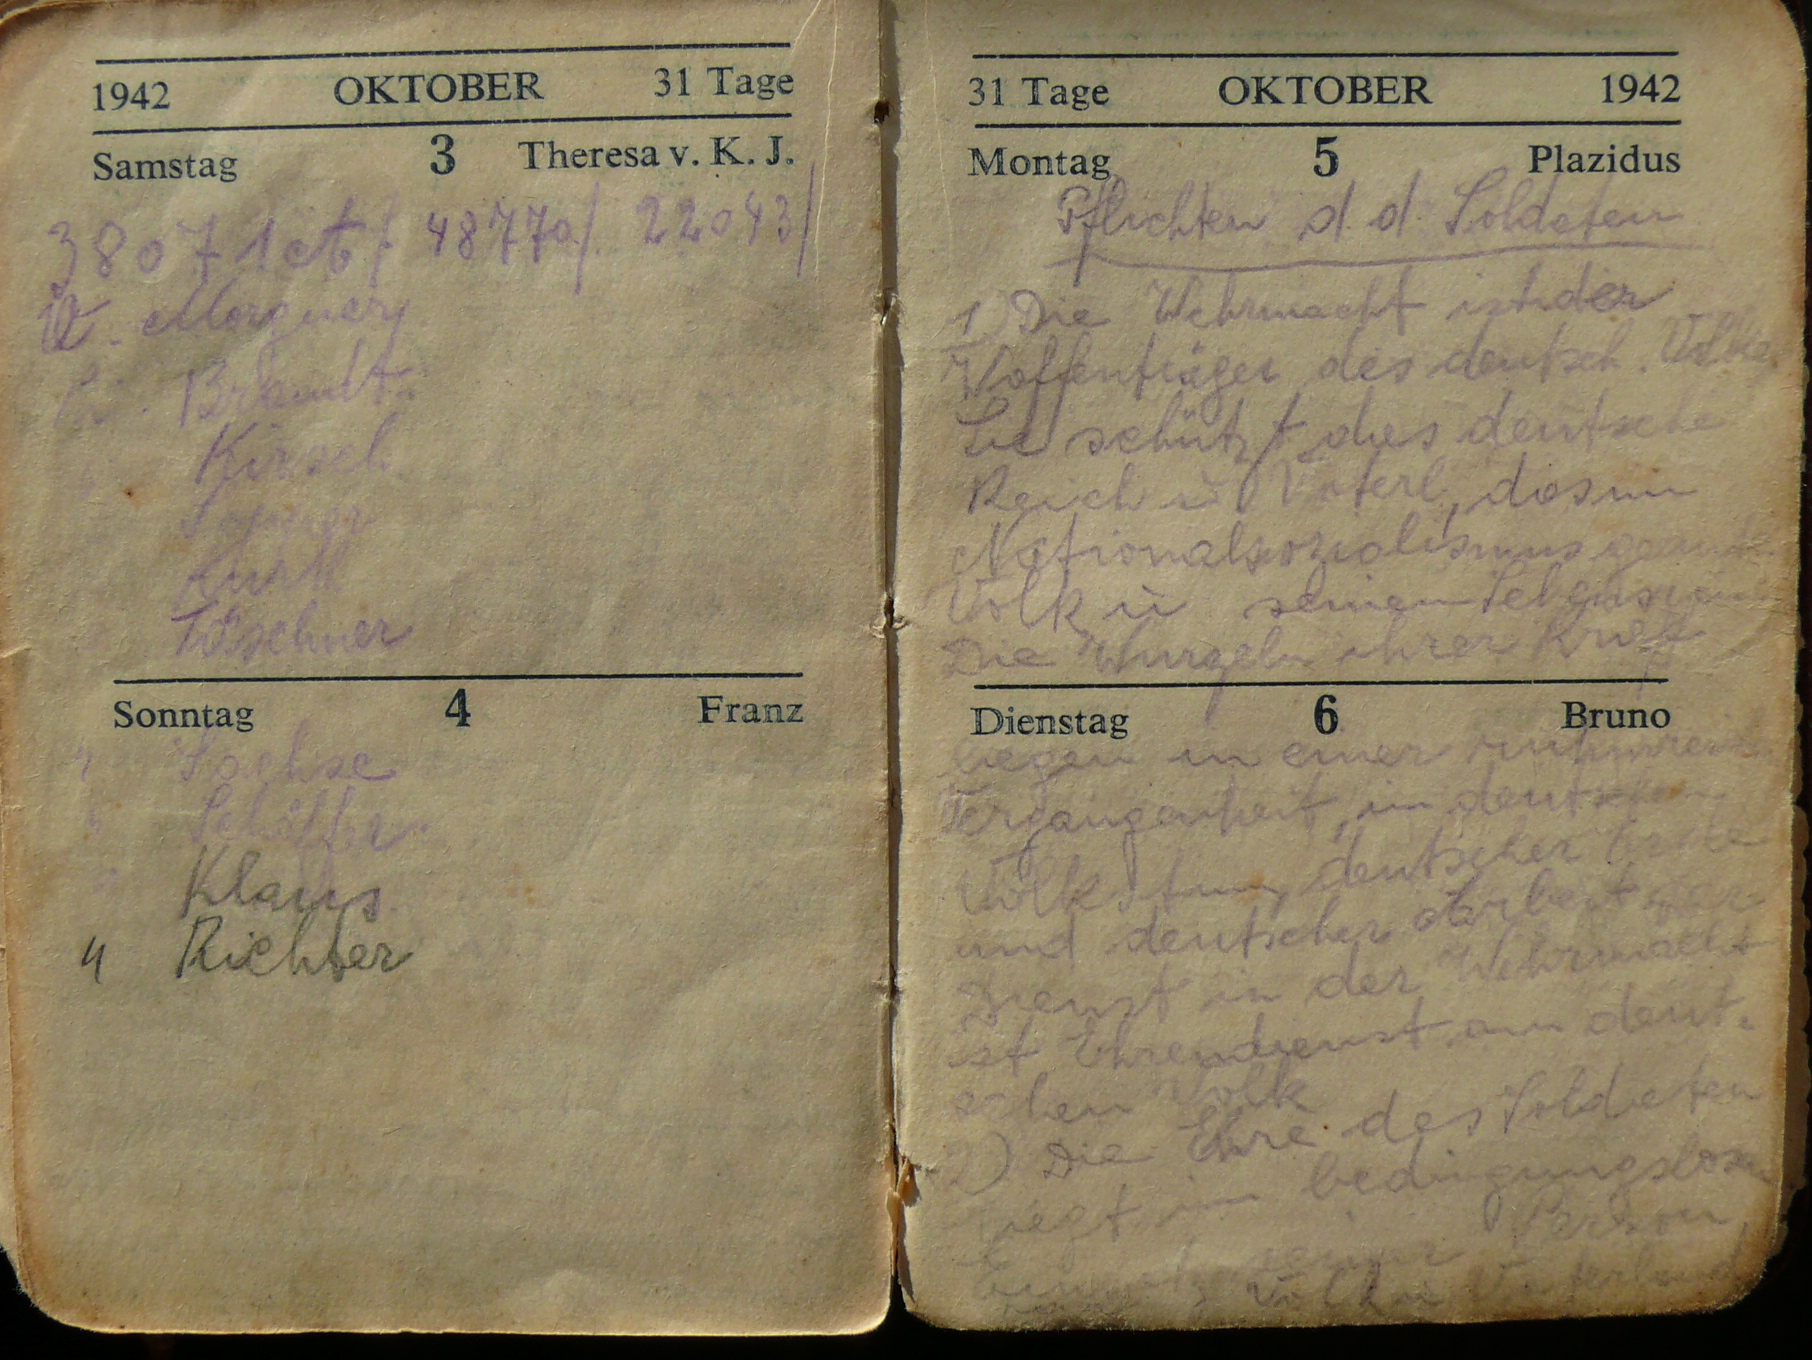 1942 OKTOBER 31 Tage
Samstag 3 Theresa v. K. J.
38071 ct / 48770 / 22043 /
Brandt
Kirsch
Kurth
Löschner
Sonntag 4 Franz
" Sachse
" Schäffer
" Klaus
" Richter
31 Tage OKTOBER 1942
Montag 5 Plazidus
Pflichten d. d. Soldaten
1) Die Wehrmacht ist der
Waffenträger des deutsch. Volkes
Sie schützt das deutsche
Reich u Vaterl, das im
Nationalsozialismus geeinte
Volk u seinen
Die Wurzeln ihrer Kraft
Dienstag 6 Bruno
liegen in einer ruhmreichen
Vergangenheit, im deutschen
Volkstum, deutscher Erde
und deutscher Arbeit
Dienst in der Wehrmacht
ist Ehrendienst am deut.
schen Volk
2) Die Ehre des Soldaten
liegt im bedingungslosen
Einsatz seiner Person
Volk u Vaterland